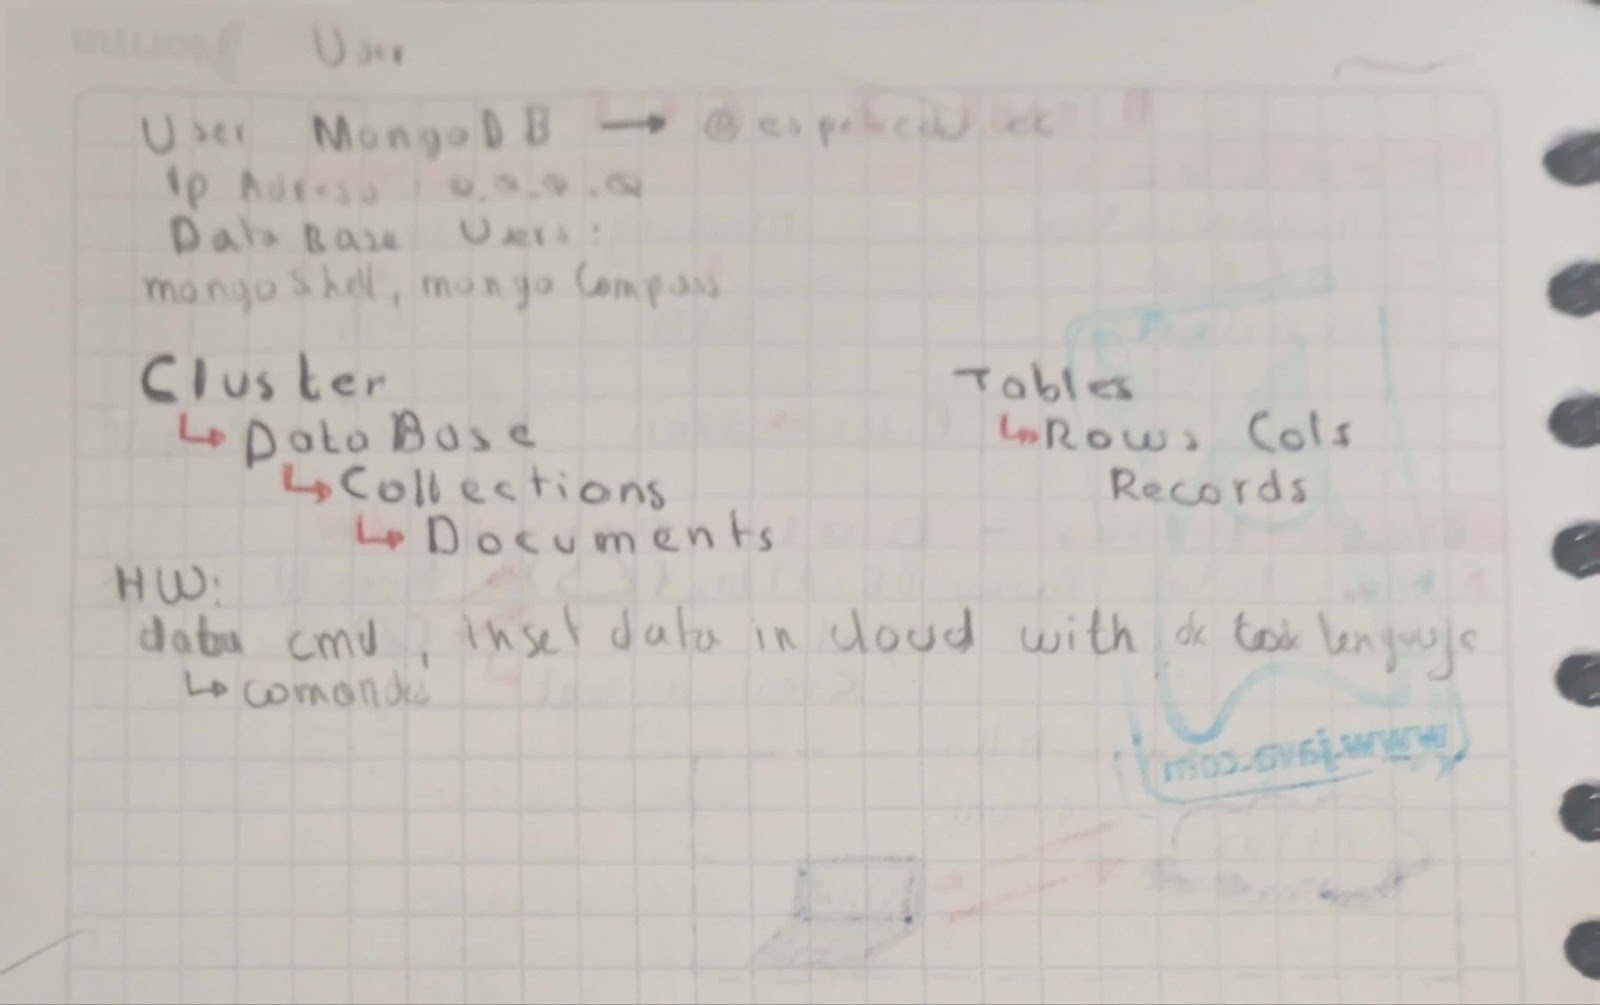 User
User MongoDB → @espe.edu.ec
Ip Adress : 0.0.0.0
Data Base Users:
mongo Shell, mongo Compass
Cluster
↳ Data Base
↳ Collections
↳ Documents
Tables
↳ Rows Cols
Records
HW:
data cmd, inset data in cloud with
↳ comands
www.java.com